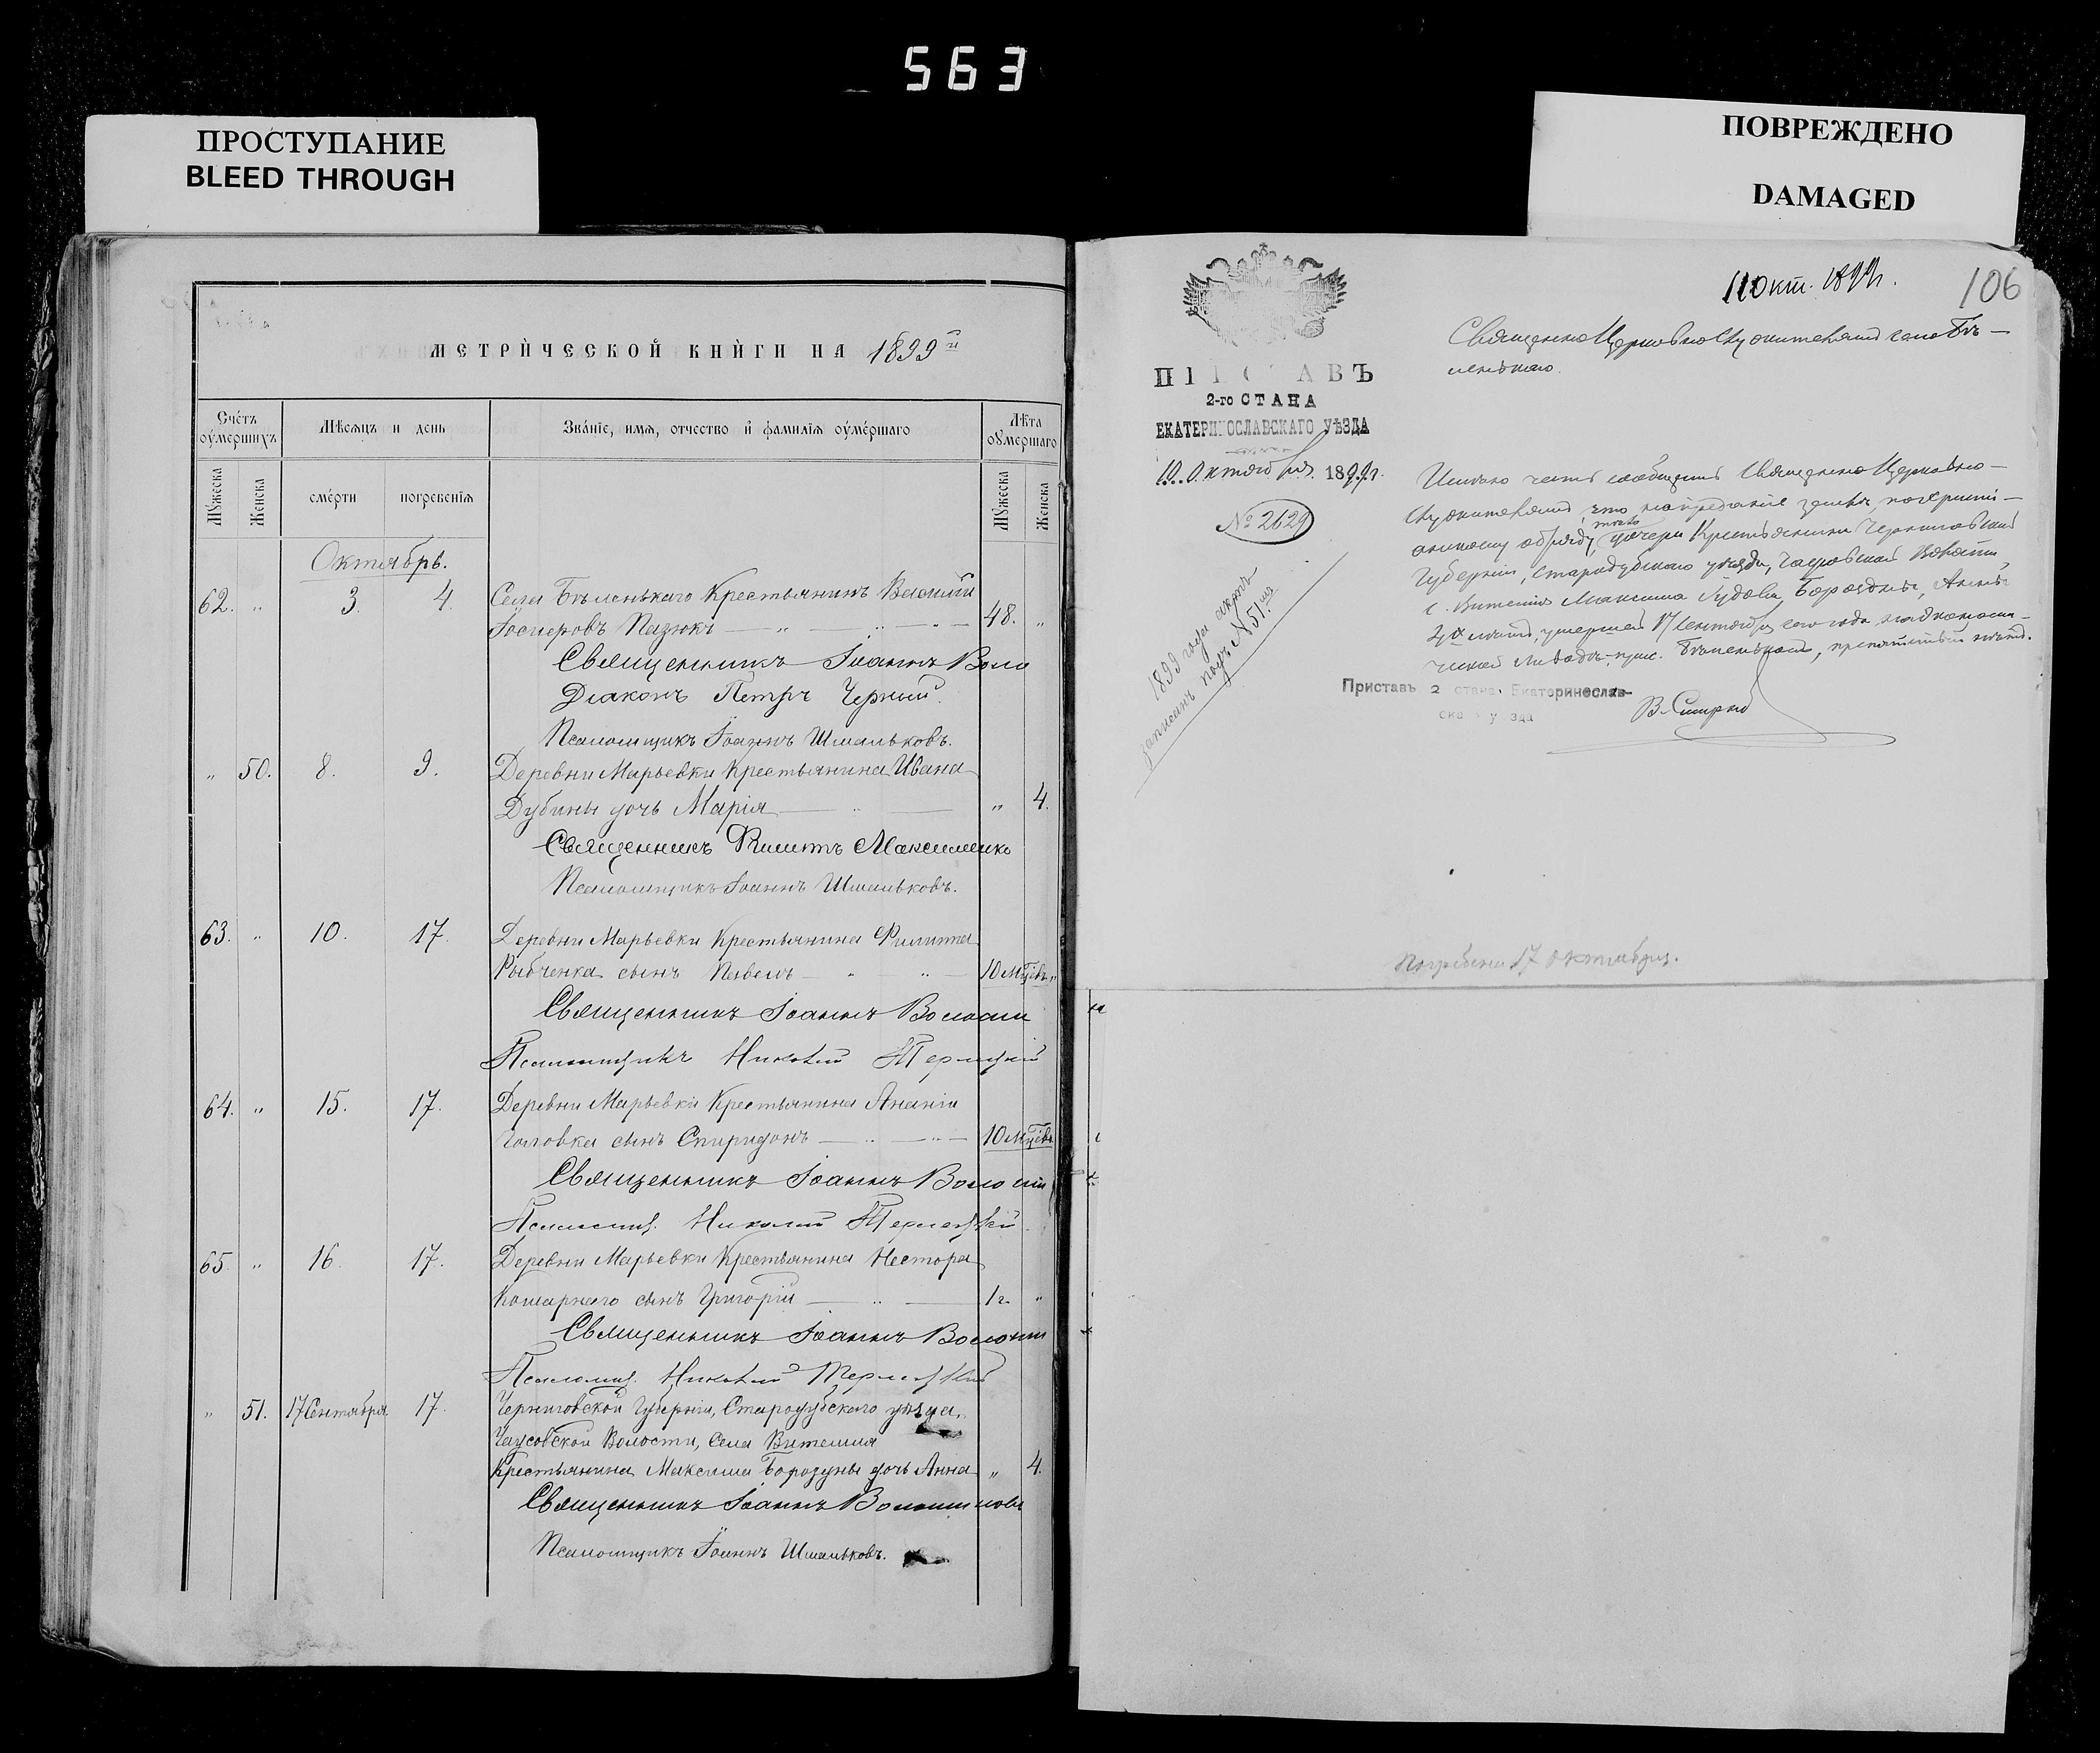 563
ПРОСТУПАНИЕ
BLEED THROUGH
ПОВРЕЖДЕНО
DAMAGED
МЕТРИЧЕСКОЙ КНИГИ НА 1899 й
Счетъ оумершихъ
Мѣсяцъ и день
Званіе, имя, отчество и фамилія оумершаго
Лѣта оумершаго
Мужеска
Женска
смерти
погребенія
Мужеска
Женска
Октябрь.
62. " 3. 4. Села Бѣленькаго Крестьянинъ Василій
Пазюкъ 48. "
Священникъ Іоаннъ
Діаконъ Петръ Черный.
Псаломщикъ Іоаннъ Шмальковъ.
" 50. 8. 9. Деревни Марьевки Крестьянина Ивана
Дубины дочь Марія " 4.
Священникъ Филиппъ Максименко
Псаломщикъ Іоаннъ Шмальковъ.
63. " 10. 17. Деревни Марьевки Крестьянина Филиппа
Рыбченка сынъ Павелъ 10 мцѣвъ "
Священникъ Іоаннъ
Псаломщикъ Николай
64. " 15. 17. Деревни Марьевки Крестьянина Ананіи
Головка сынъ Спиридонъ 10 мцѣвъ
Священникъ Іоаннъ
Псаломщ. Николай
65. " 16. 17. Деревни Марьевки Крестьянина Нестора
Кошарнаго сынъ Григорій 1 г. "
Священникъ Іоаннъ
Псаломщ. Николай
" 51. 17 Сентября 17. Черниговской Губерніи, Стародубскаго уѣзда,
Чаусовской Волости, Села Витемля
Крестьянина Максима Борозды дочь Анна " 4.
Священникъ Іоаннъ
Псаломщикъ Іоаннъ Шмальковъ.
11 Окт. 1899 г.
106
Священно Церковно Служителямъ села Бѣ-
ленькаго.
ПРИСТАВЪ
2-го СТАНА
ЕКАТЕРИНОСЛАВСКАГО УѢЗДА
10 Октября 1899 г.
№ 2629
1899 года актъ
записанъ подъ № 51.
Имѣю честь сообщить Священно Церковно-
служителямъ что на преданіе землѣ, по христі-
анскому обряду, дочери Крестьянина Черниговской
Губерніи, Стародубскаго уѣзда, Чаусовской Волости,
с. Витемля Максима Борозды, Анны
4х лѣтъ, умершей 17 Сентября сего года
при с. Бѣленькомъ, препятствій нѣтъ.
Приставъ 2 стана Екатеринослав-
скаго уѣзда
Погребена 17 октября.